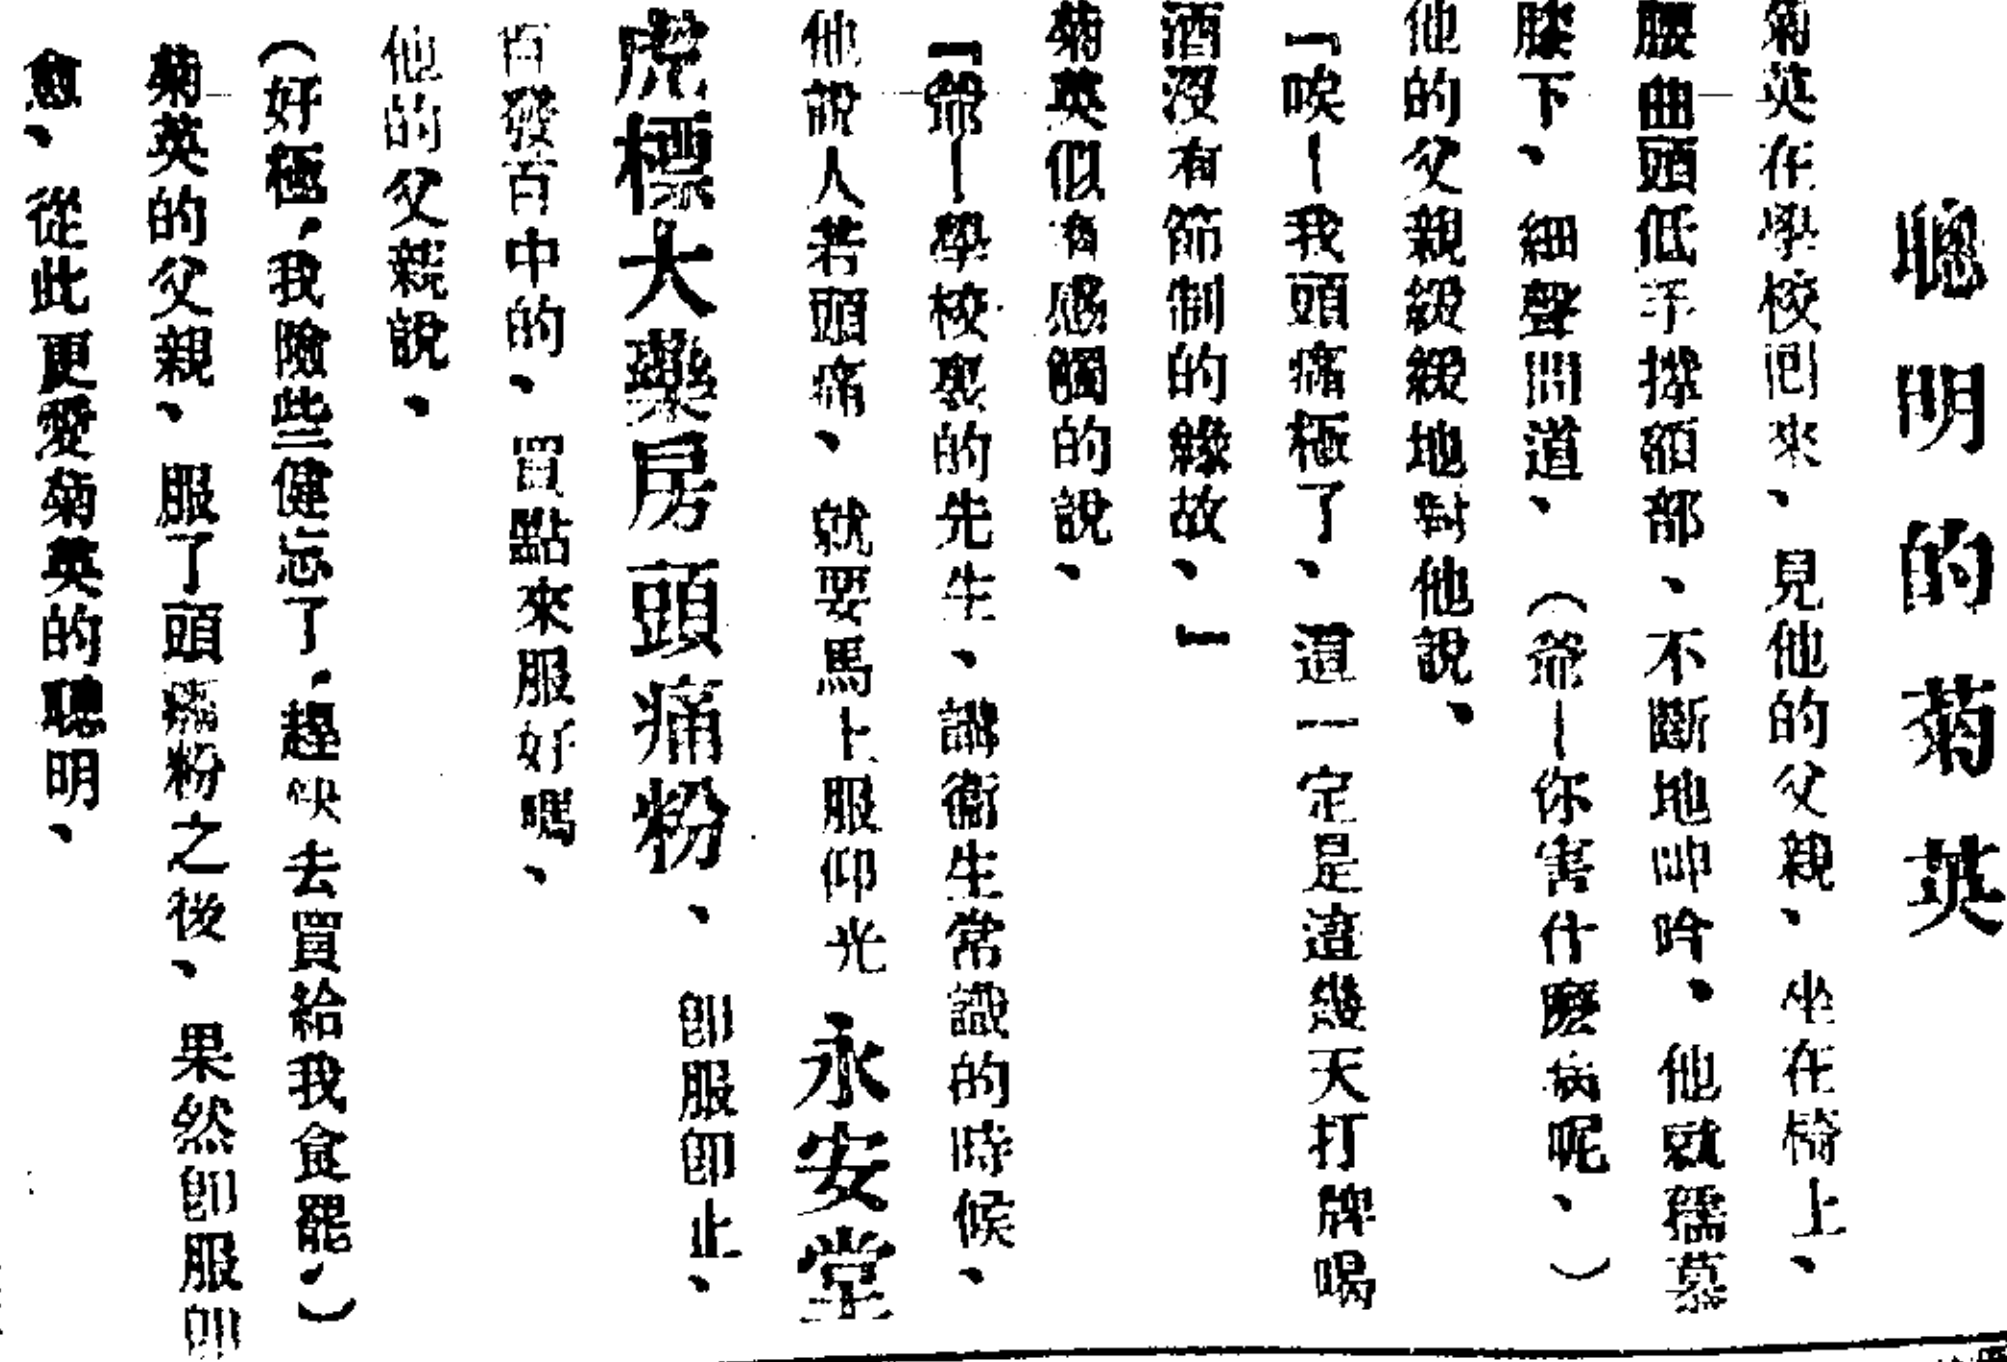 聰明的菊英
菊英在學校回來、見他的父親、坐在椅上、
腰曲頭低手撐額部、不斷地呻吟、他就孺慕
膝下、細聲問道、（爺—你害什麽病呢、）
他的父親緩緩地對他說、
「唉—我頭痛極了、這一定是這幾天打牌喝
酒沒有節制的緣故、」
菊英似有感觸的說、
「爺—學校裏的先生、講衞生常識的時候、
他說人若頭痛、就要馬上服仰光永安堂
虎標大藥房頭痛粉、卽服卽止、
百發百中的、買點來服好嗎、
他的父親說、
（好極，我險些健忘了，趕快去買給我食罷，）
菊英的父親、服了頭痛粉之後、果然卽服卽
愈、從此更愛菊英的聰明、